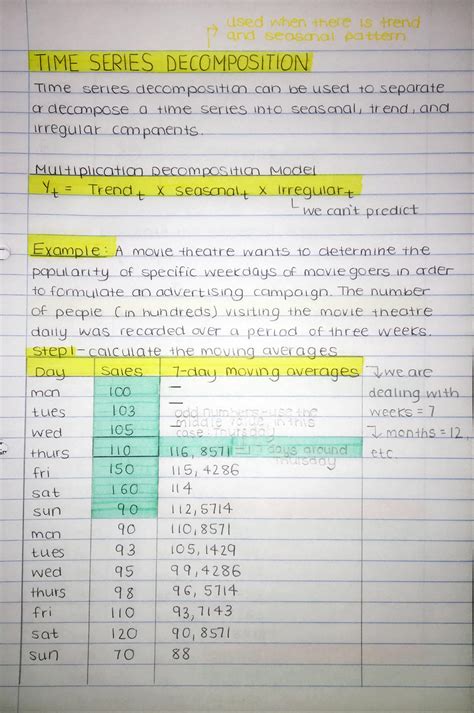 used when there is trend
and seasonal pattern
TIME SERIES DECOMPOSITION
Time series decomposition can be used to separate
or decompose a time series into seasonal, trend, and
irregular components.
Multiplication Decomposition Model
Yt = Trendt x seasonalt x Irregulart
we can't predict
Example: A movie theatre wants to determine the
popularity of specific weekdays of moviegoers in order
to formulate an advertising campaign. The number
of people (in hundreds) visiting the movie theatre
daily was recorded over a period of three weeks.
step1 - calculate the moving averages
Day Sales 7-day moving averages we are
mon 100 — dealing with
tues 103 — odd numbers-use the weeks = 7
middle value, in this
wed 105 — case Thursday months = 12,
thurs 110 116,8571 days around etc.
Thursday
fri 150 115,4286
sat 160 114
sun 90 112,5714
mon 90 110,8571
tues 93 105,1429
wed 95 99,4286
thurs 98 96,5714
fri 110 93,7143
sat 120 90,8571
sun 70 88